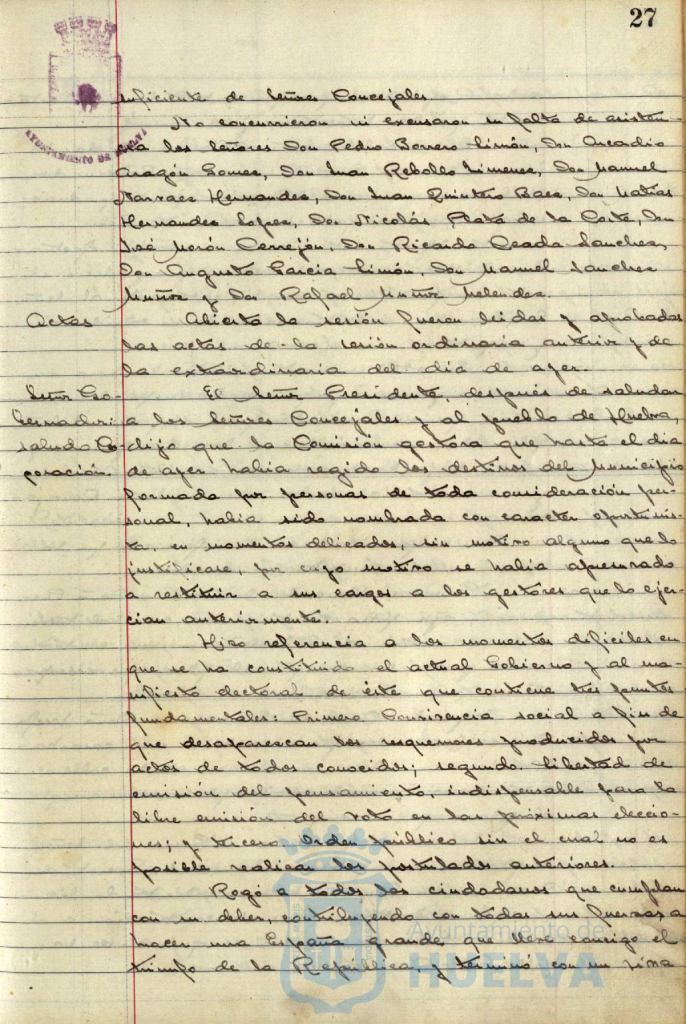 27
AYUNTAMIENTO DE HUELVA
suficiente de Señores Concejales
No concurrieron ni excusaron su falta de asisten-
cia los señores Don Pedro Borrero Limón, Don Arcadio
Aragón Gomez, Don Juan Rebollo Jimenez, Don Manuel
Narvaez Hernandez, Don Juan Quintero Baez, Don Matias
Hernandez Lopez, Don Nicolás Plata de la Corte, Don
José Morón Cerrejón, Don Ricardo Ceada Sanchez,
Don Augusto Garcia Limón, Don Manuel Sanchez
Muñoz y Don Rafael Muñoz Melendez.
Actas
Abierta la sesión fueron leidas y aprobadas
las actas de la sesión ordinaria anterior y de
la extraordinaria del dia de ayer.
Señor Go-
bernador:
saludo Co-
poración.
El Señor Presidente, después de saludar
a los Señores Concejales y al pueblo de Huelva,
dijo que la Comisión gestora que hasta el dia
de ayer habia regido los destinos del Municipio
formada por personas de toda consideración per-
sonal, habia sido nombrada con caracter oportunis-
ta, en momentos delicados, sin motivo alguno que lo
justificase, por cuyo motivo se habia apresurado
a restituir a sus cargos a los gestores que lo ejer-
cian anteriormente.
Hizo referencia a los momentos dificiles en
que se ha constituido el actual Gobierno y al ma-
nifiesto electoral de éste que contiene tres puntos
fundamentales: Primero Convivencia social a fin de
que desaparezcan los resquemores producidos por
actos de todos conocidos; segundo. Libertad de
emisión del pensamiento, indispensable para la
libre emisión del voto en las próximas eleccio-
nes; y tercero Orden público sin el cual no es
posible realizar los postulados anteriores.
Rogó a todos los ciudadanos que cumplan
con su deber, contribuyendo con todas sus fuerzas a
hacer una España grande que lleve consigo el
triunfo de la República, y terminó con un viva
Ayuntamiento de
HUELVA